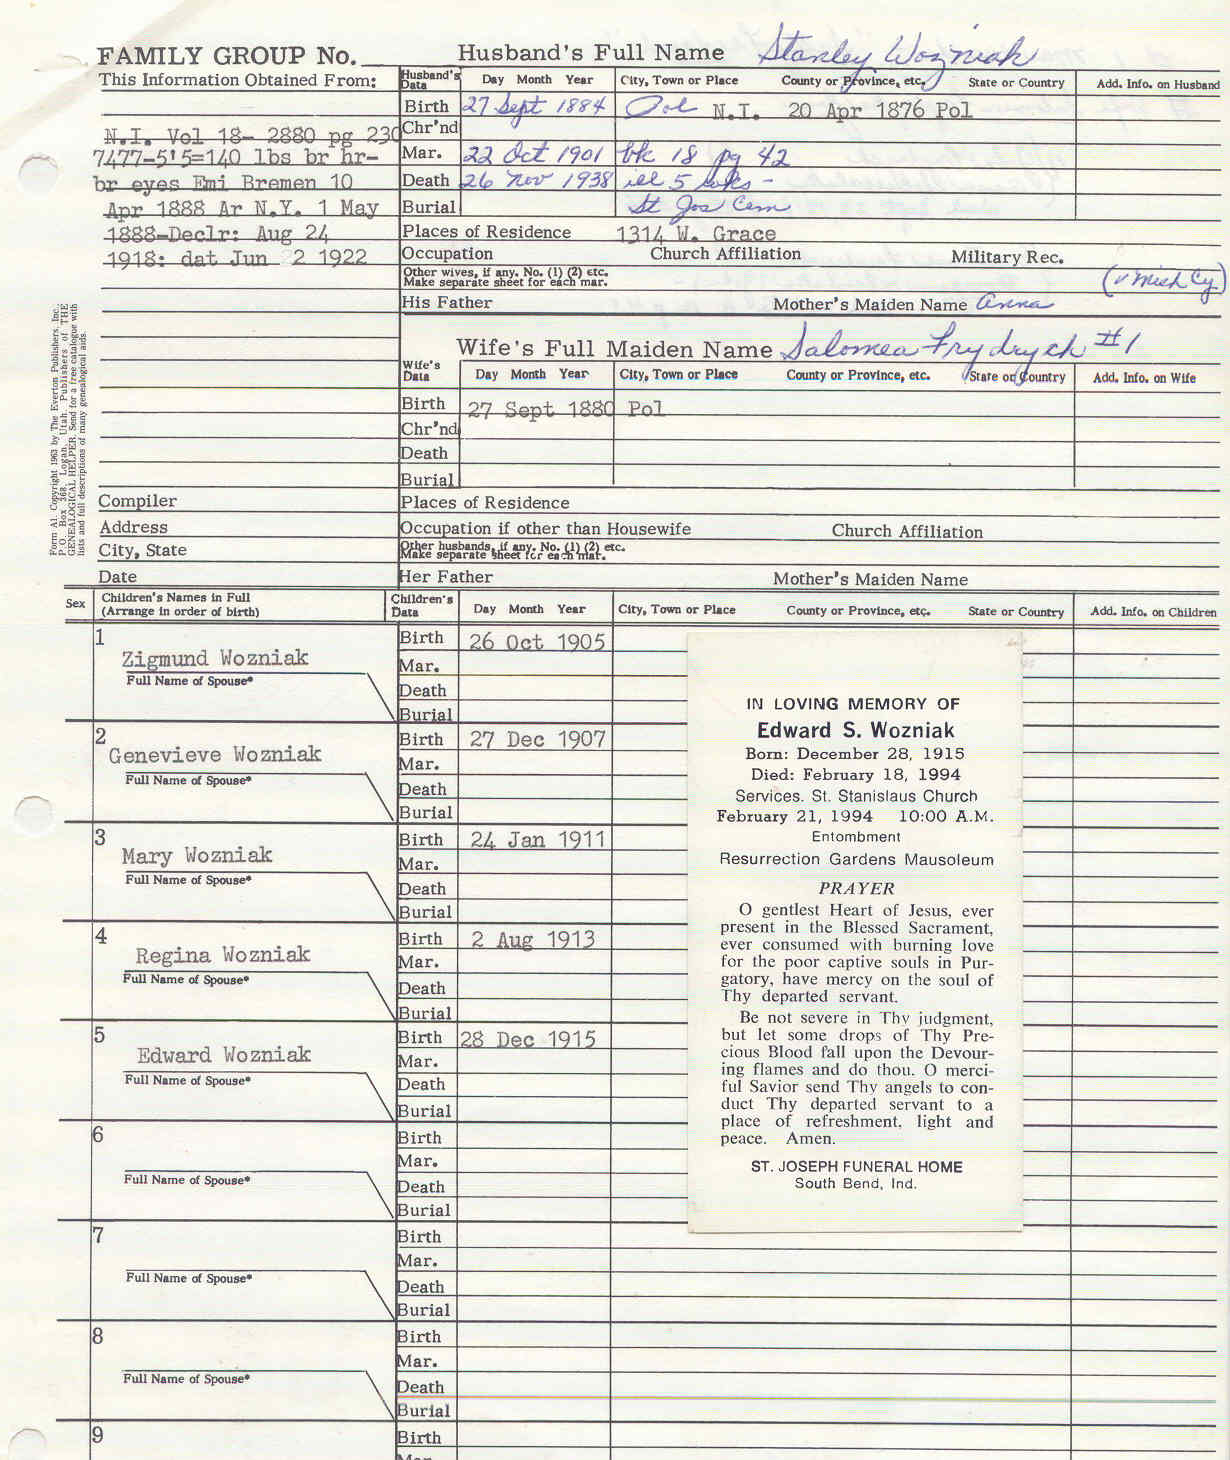 FAMILY GROUP No.
Husband's Full Name Stanley Wozniak
This Information Obtained From:
Husband's Data Day Month Year City, Town or Place County or Province, etc. State or Country Add. Info. on Husband
Birth 27 Sept 1884 Pol N.I. 20 Apr 1876 Pol
Chr'nd
N.I. Vol 18- 2880 pg 230
Mar. 22 Oct 1901 bk 18 pg 42
7477-5'5=140 lbs br hr-
Death 26 Nov 1938 ill 5 wks -
br eyes Emi Bremen 10
Burial St Jos Cem
Apr 1888 Ar N.Y. 1 May
Places of Residence 1314 W. Grace
1888-Declr: Aug 24
Occupation Church Affiliation Military Rec.
1918: dat Jun 2 1922
Other wives, if any. No. (1) (2) etc.
Make separate sheet for each mar.
(v Mish Cy)
His Father Mother's Maiden Name Anna
Wife's Full Maiden Name Salomea Frydrych #1
Wife's Data Day Month Year City, Town or Place County or Province, etc. State or Country Add. Info. on Wife
Birth 27 Sept 1880 Pol
Chr'nd
Death
Burial
Form A1. Copyright 1963 by The Everton Publishers, Inc.,
P.O. Box 368, Logan, Utah. Publishers of THE
GENEALOGICAL HELPER. Send for a free catalogue with
lists and full descriptions of many genealogical aids.
Compiler
Places of Residence
Address
Occupation if other than Housewife Church Affiliation
City, State
Other husbands, if any. No. (1) (2) etc.
Make separate sheet for each mar.
Date
Her Father Mother's Maiden Name
Sex Children's Names in Full
(Arrange in order of birth)
Children's Data Day Month Year City, Town or Place County or Province, etc. State or Country Add. Info. on Children
1
Zigmund Wozniak
Full Name of Spouse*
Birth 26 Oct 1905
Mar.
Death
Burial
2
Genevieve Wozniak
Full Name of Spouse*
Birth 27 Dec 1907
Mar.
Death
Burial
3
Mary Wozniak
Full Name of Spouse*
Birth 24 Jan 1911
Mar.
Death
Burial
4
Regina Wozniak
Full Name of Spouse*
Birth 2 Aug 1913
Mar.
Death
Burial
5
Edward Wozniak
Full Name of Spouse*
Birth 28 Dec 1915
Mar.
Death
Burial
6
Full Name of Spouse*
Birth
Mar.
Death
Burial
7
Full Name of Spouse*
Birth
Mar.
Death
Burial
8
Full Name of Spouse*
Birth
Mar.
Death
Burial
9
Birth
Mar.
IN LOVING MEMORY OF
Edward S. Wozniak
Born: December 28, 1915
Died: February 18, 1994
Services. St. Stanislaus Church
February 21, 1994 10:00 A.M.
Entombment
Resurrection Gardens Mausoleum
PRAYER
O gentlest Heart of Jesus, ever
present in the Blessed Sacrament,
ever consumed with burning love
for the poor captive souls in Pur-
gatory, have mercy on the soul of
Thy departed servant.
Be not severe in Thy judgment,
but let some drops of Thy Pre-
cious Blood fall upon the Devour-
ing flames and do thou. O merci-
ful Savior send Thy angels to con-
duct Thy departed servant to a
place of refreshment, light and
peace. Amen.
ST. JOSEPH FUNERAL HOME
South Bend, Ind.